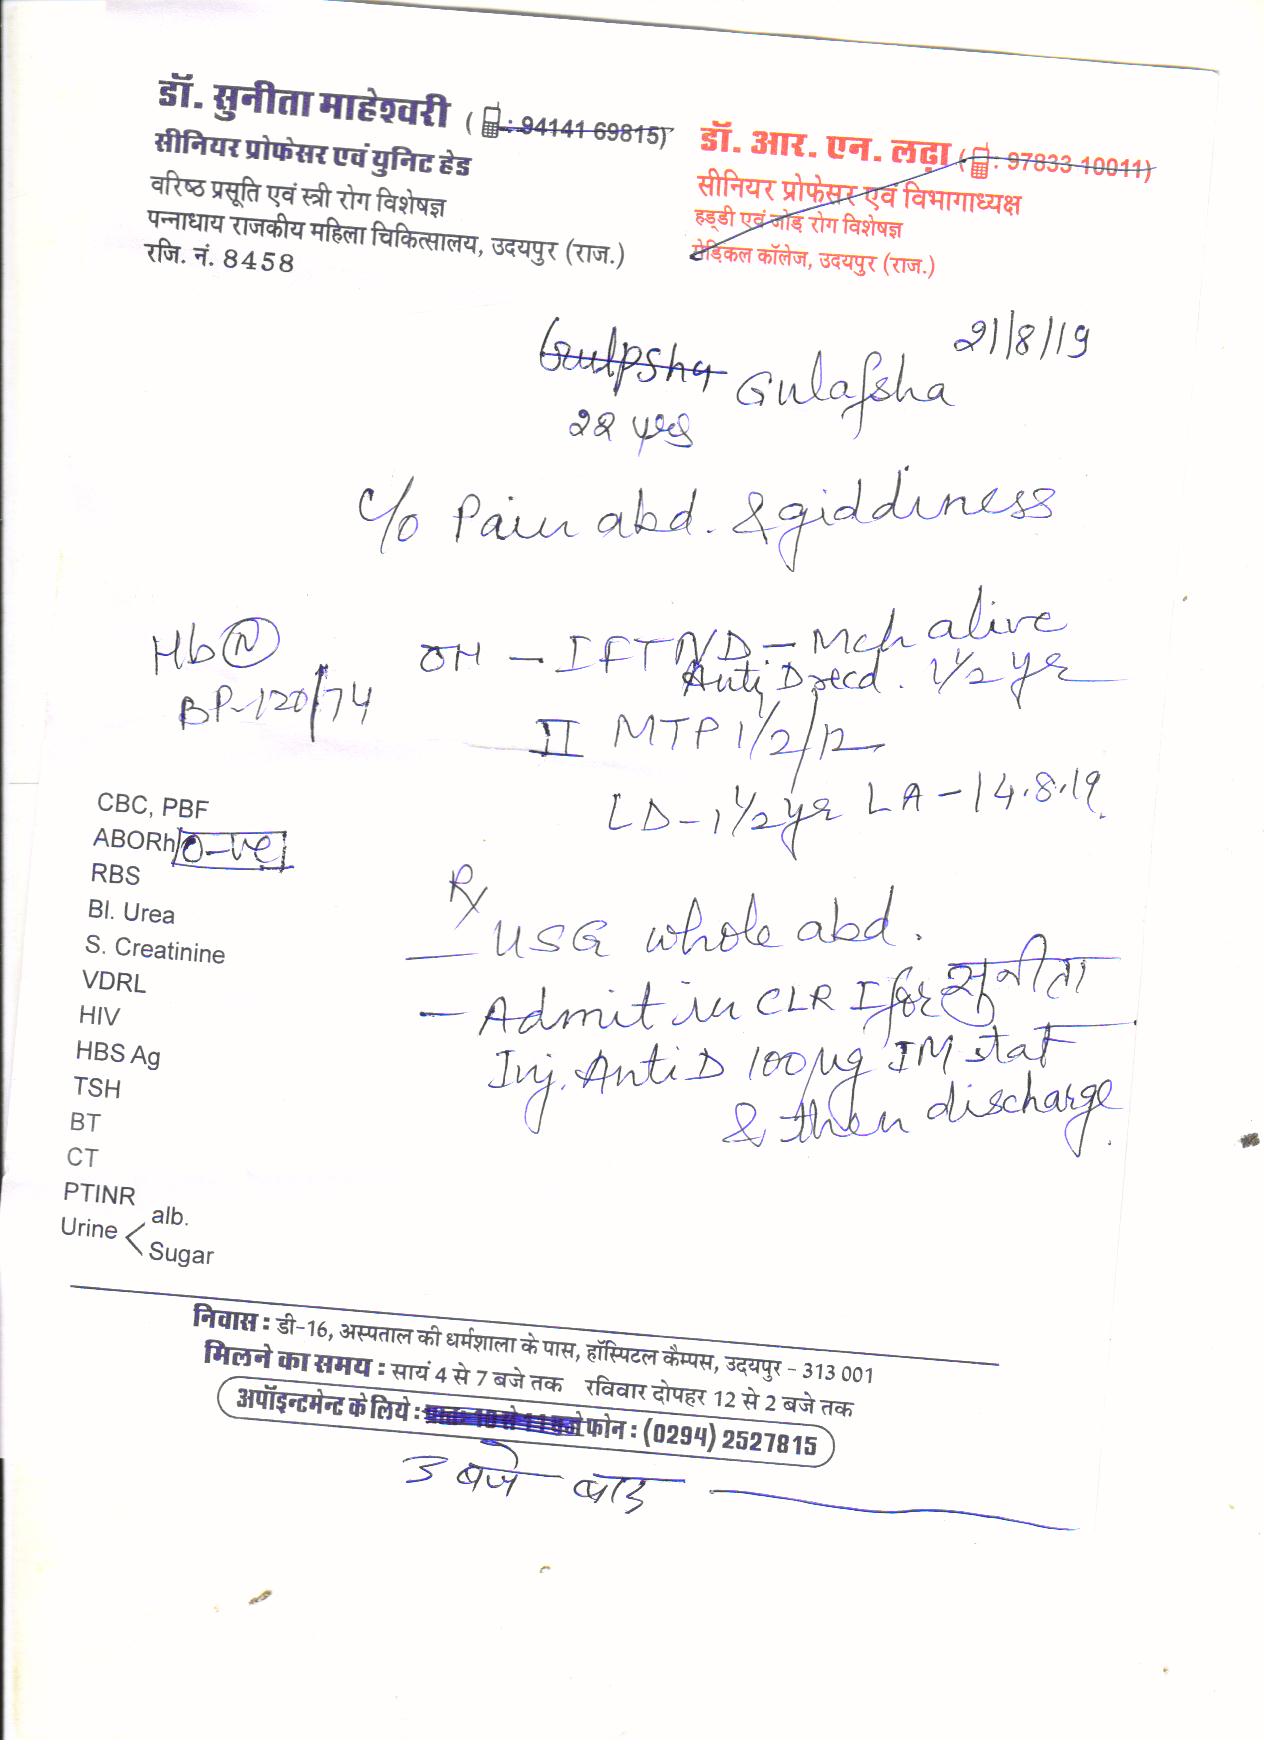 डॉ. सुनीता माहेश्वरी ( : 94141 69815)
सीनियर प्रोफेसर एवं युनिट हेड
वरिष्ठ प्रसूति एवं स्त्री रोग विशेषज्ञ
पन्नाधाय राजकीय महिला चिकित्सालय, उदयपुर (राज.)
रजि. नं. 8458
डॉ. आर. एन. लढ़ा ( : 97833 10011)
सीनियर प्रोफेसर एवं विभागाध्यक्ष
हड्डी एवं जोड़ रोग विशेषज्ञ
मेडिकल कॉलेज, उदयपुर (राज.)
21/8/19
Gulpsha Gulafsha
22 yrs
c/o Pain abd. & giddiness
Hb (N)
BP-120/74
OH - I FTND - Mch alive
Anti D recd. 1½ yr
II MTP 1/2/12
LD - 1½ yr LA - 14.8.19
CBC, PBF
ABORh O-ve
RBS
Bl. Urea
S. Creatinine
VDRL
HIV
HBS Ag
TSH
BT
CT
PTINR
Urine < alb.
Sugar
Rx
- USG whole abd.
- Admit in CLR I for सुनीता
Inj. Anti D 100 µg IM stat
& then discharge.
निवास : डी-16, अस्पताल की धर्मशाला के पास, हॉस्पिटल कैम्पस, उदयपुर - 313 001
मिलने का समय : सायं 4 से 7 बजे तक रविवार दोपहर 12 से 2 बजे तक
अपॉइन्टमेन्ट के लिये : प्रातः 10 से 11 बजे फोन : (0294) 2527815
3 बजे बाद